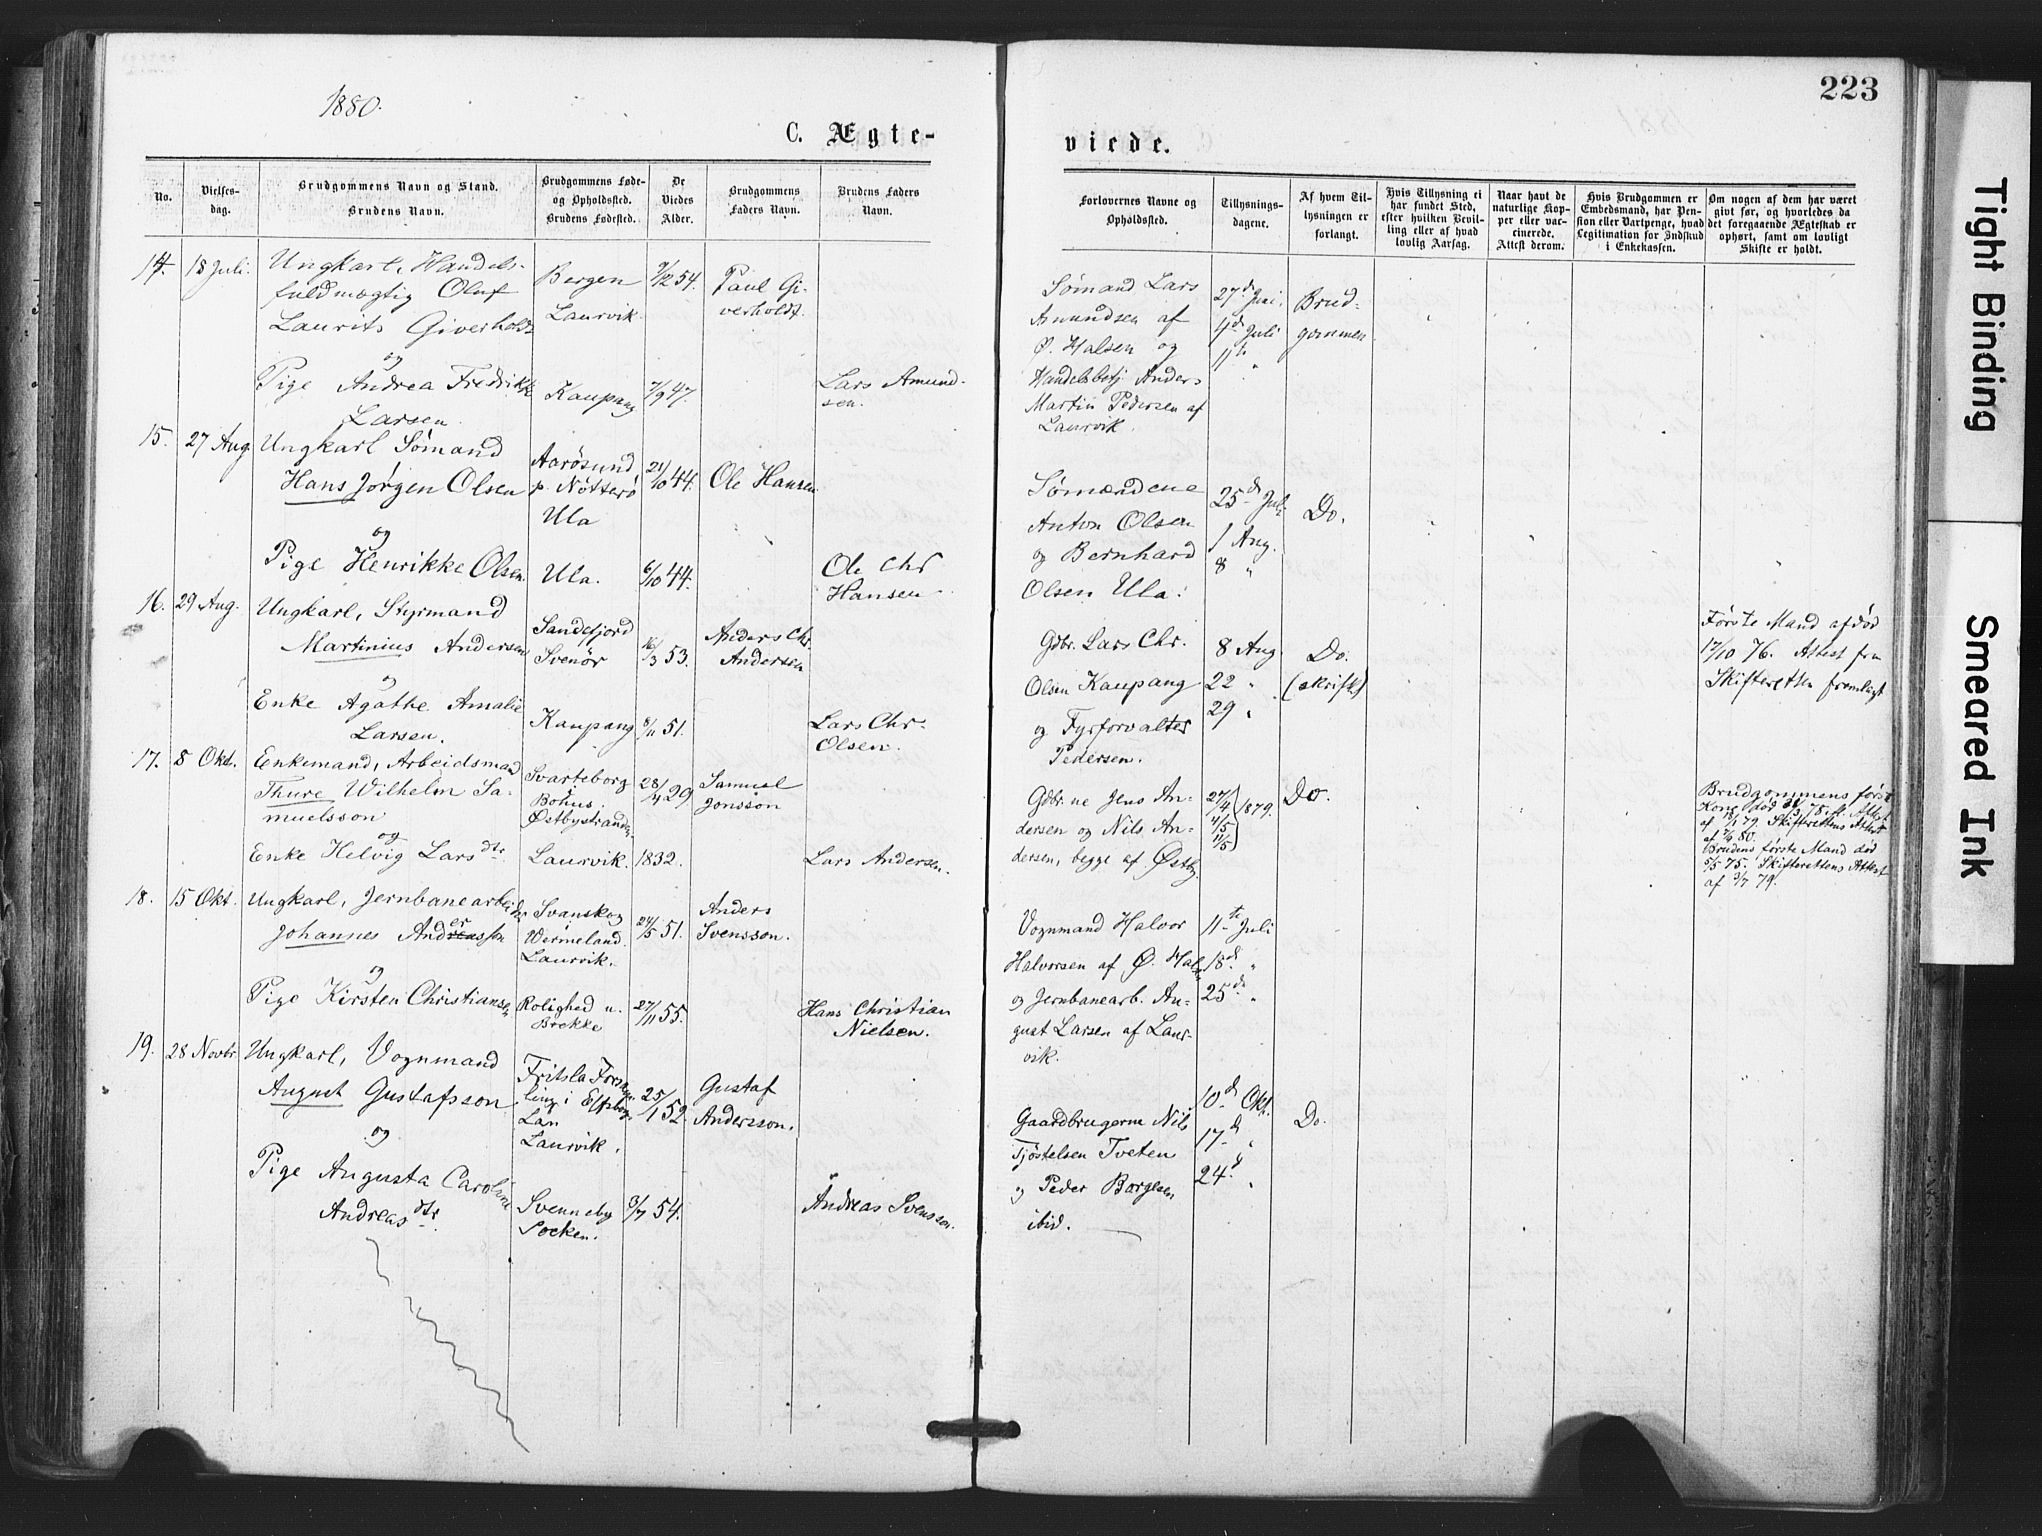 1880.
223
C. Ægte-
viede.
No.
Vielses-
dag.
Brudgommens Navn og Stand.
Brudens Navn.
Brudgommens Føde-
og Opholdssted.
Brudens Fødested.
De
Viedes
Alder.
Brudgommens
Faders Navn.
Brudens Faders
Navn.
Forlovernes Navne og
Opholdssted.
Tillysnings-
dagene.
Af hvem Til-
lysningen er
forlangt.
Hvis Tillysning ei
har fundet Sted,
efter hvilken Bevil-
ling eller af hvad
lovlig Aarsag.
Naar havt de
naturlige Kop-
per eller vac-
cinerede.
Attest derom.
Hvis Brudgommen er
Embedsmand, har Pen-
sion eller Vartpenge, hvad
Legitimation for Indskud
i Enkekassen.
Om nogen af dem har været
givt før, og hvorledes da
det foregaaende Ægteskab er
ophørt, samt om lovligt
Skifte er holdt.
14.
18 Juli.
Ungkarl, Handels-
fuldmægtig Oluf
Laurits Giverholdt
og
Pige Andrea Fredrikke
Larsen.
Bergen
Laurvik.
Kaupang
9/12 54.
7/9 47.
Paul Gi-
verholdt.
Lars Amund-
sen.
Sømand Lars
Amundsen af
Ø. Halsen og
Handelsbetj Anders
Martin Pedersen af
Laurvik.
27d Juni.
4d Juli
11te "
Brud-
gommen
15.
27 Aug.
Ungkarl Sømand
Hans Jørgen Olsen
og
Pige Henrikke Olsen.
Aarøsund
p. Nøtterø
Ula
Ula.
21/10 44.
6/10 44.
Ole Hansen
Ole Chr
Hansen
Sømændene
Anton Olsen
og Bernhard
Olsen Ula.
25d Juli
1 Aug.
8 "
Do.
16.
29 Aug.
Ungkarl, Styrmand
Martinius Andersen
og
Enke Agathe Amalie
Larsen.
Sandefjord
Svenør
Kaupang
16/3 53.
8/11 51.
Anders Chr.
Andersen
Lars Chr.
Olsen.
Gdbr. Lars Chr.
Olsen Kaupang
og Fyrforvalter
Pedersen.
8 Aug
22 "
29 "
Do.
(skriftl)
Første Mand afdød
17/10 76. Attest fra
Skifteretten fremlagt
17.
8 Okt.
Enkemand, Arbeidsmand
Thure Wilhelm Sa-
muelsson
og
Enke Helvig Larsdtr
Svarteborg
Bohus.
Østbystranden
Laurvik.
28/4 29
1832.
Samuel
Jonsson
Lars Andersen.
Gdbr.ne Jens An-
dersen og Nils An-
dersen, begge af Østby.
27/4
4/5
11/5
1879.
Do.
Brudgommens første
Kone død
Skifterettens Attest
Brudens første Mand død
5/5 75. Skifterettens Attest
af 3/7 79.
18.
15 Okt.
Ungkarl, Jernbanearbeider
Johannes Andersson
og
Pige Kirsten Christiansen
Svanskog
Wermeland.
Laurvik.
Rolighed u.
Brekke
24/5 51.
27/11 55.
Anders
Svensson.
Hans Christian
Nielsen.
Vognmand Halvor
Halvorsen af Ø. Halsen
og Jernbanearb. Au-
gust Larsen af Laur-
vik.
11te Juli
18d. "
25de "
19.
28 Novbr.
Ungkarl, Vognmand
August Gustafsson
og
Pige Augusta Caroline
Andreasdtr.
Fritsla
Län
Laurvik.
Svenneby
Socken.
25/1 52.
3/7 54.
Gustaf
Andersson.
Andreas Svensson.
Gaardbrugerne Nils
Tjøstelsen Tveten
og Peder Borgesen
ibid.
10d Okt.
17d "
24d "
Do.
Tight Binding
Smeared Ink